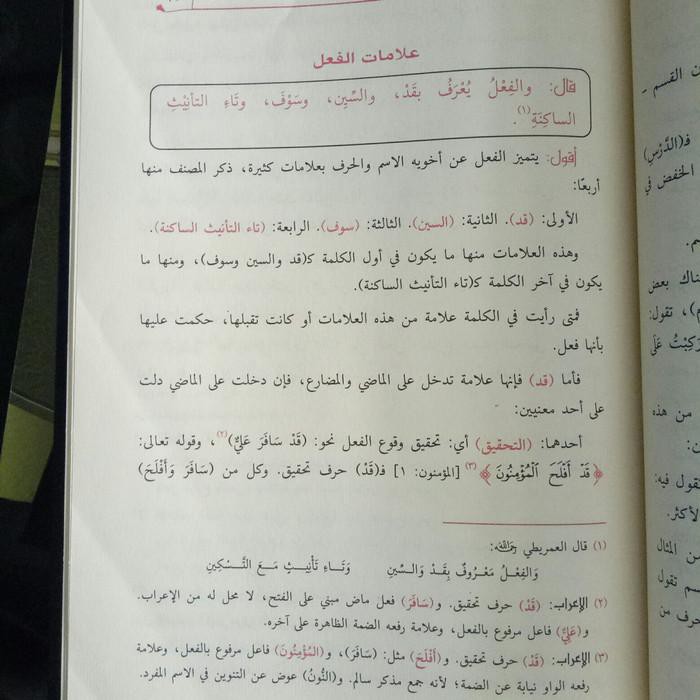 علامات الفعل
قال: والفِعْلُ يُعْرَفُ بقَدْ، والسِّينِ، وسَوْفَ، وتَاءِ التأنِيْثِ
الساكِنَةِ(١).
أقول: يتميز الفعل عن أخويه الاسم والحرف بعلامات كثيرة، ذكر المصنف منها
أربعًا:
الأولى: (قد). الثانية: (السين). الثالثة: (سوف). الرابعة: (تاء التأنيث الساكنة).
وهذه العلامات منها ما يكون في أول الكلمة كـ(قد والسين وسوف)، ومنها ما
يكون في آخر الكلمة كـ(تاء التأنيث الساكنة).
فمتى رأيت في الكلمة علامة من هذه العلامات أو كانت تقبلها، حكمت عليها
بأنها فعل.
فأما (قد) فإنها علامة تدخل على الماضي والمضارع، فإن دخلت على الماضي دلت
على أحد معنيين:
أحدهما: (التحقيق) أي: تحقيق وقوع الفعل نحو: (قَدْ سَافَرَ عَلِيٌّ)(٢)، وقوله تعالى:
﴿قَدْ أَفْلَحَ الْمُؤْمِنُونَ﴾(٣) [المؤمنون: ١] فـ(قَدْ) حرف تحقيق. وكل من (سَافَرَ وَأَفْلَحَ)
(١) قال العمريطي رحمه الله:
وَالْفِعْلُ مَعْرُوفٌ بِقَدْ وَالسِّينِ وَتَاءِ تَأْنِيثٍ مَعَ التَّسْكِينِ
(٢) الإعراب: (قَدْ) حرف تحقيق. و(سَافَرَ) فعل ماض مبني على الفتح، لا محل له من الإعراب.
و(عَلِيٌّ) فاعل مرفوع بالفعل، وعلامة رفعه الضمة الظاهرة على آخره.
(٣) الإعراب: (قَدْ) حرف تحقيق. و(أَفْلَحَ) مثل: (سَافَرَ)، و(الْمُؤْمِنُونَ) فاعل مرفوع بالفعل، وعلامة
رفعه الواو نيابة عن الضمة؛ لأنه جمع مذكر سالم. و(النُّونُ) عوض عن التنوين في الاسم المفرد.
ن القسم -
فـ(الدَّرْسِ)
الخفض في
هم.
هناك بعض
م)، تقول:
رَكِبْتُ عَلَى
من هذه
تقول فيه:
الأكثر.
من المثال
سم تقول
حرف من